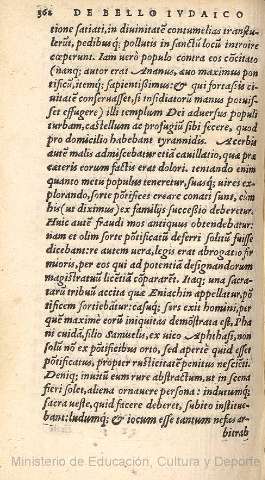 362 DE BELLO IVDAICO
tione satiati, in diuinitatē contumelias transtu-
lerūt, pedibusq; pollutis in sanctū locū introire
cœperunt. Iam uerò populo contra eos cōcitato
(nanq; autor erat Ananus, æuo maximus pon
tificū, itemq; sapientissimus: & qui fortasis ci-
uitatē conseruasset, si insidiatorū manus potuis-
set effugere) illi templum Dei aduersus populi
turbam, castellum ac profugiū sibi fecere, quod
pro domicilio habebant tyrannidis. Acerbis
autē malis admiscebatur etiā cauillatio, quæ præ
cæteris eorum factis erat dolori. tentando enim
quanto metu populus teneretur, suasq; uires ex-
plorando, sorte pōtifices creare conati sunt, cum
his (ut diximus) ex familijs successio deberetur.
Huic autē fraudi mos antiquus obtendebatur.
nam et olim sorte pōtificatū deferri solitū fuisse
dicebant: re autem uera, legis erat abrogatio fir
mioris, per eos qui ad potentiā designandorum
magistratuū licētiā cōpararēt. Itaq; una sacra-
tarū tribuū accita quæ Eniachin appellatur, pō-
tificem sortiebātur: casuq; sors exit homini, per
quē maximè eorū iniquitas demōstrata est, Pha
ni cuidā, filio Samuelis, ex uico Aphthasi, non
solū nō ex pōtificibus orto, sed aperte quid esset
pōtificatus, propter rusticitatē penitus nescienti.
Deniq; inuitū eum rure abstractum, ut in scena
fieri solet, aliena ornauere persona: indutumq;
sacra ueste, quid facere deberet, subito institue-
bant: ludumq; & iocum esse tantum nefas ar-
bitrab
Ministerio de Educación, Cultura y Deporte